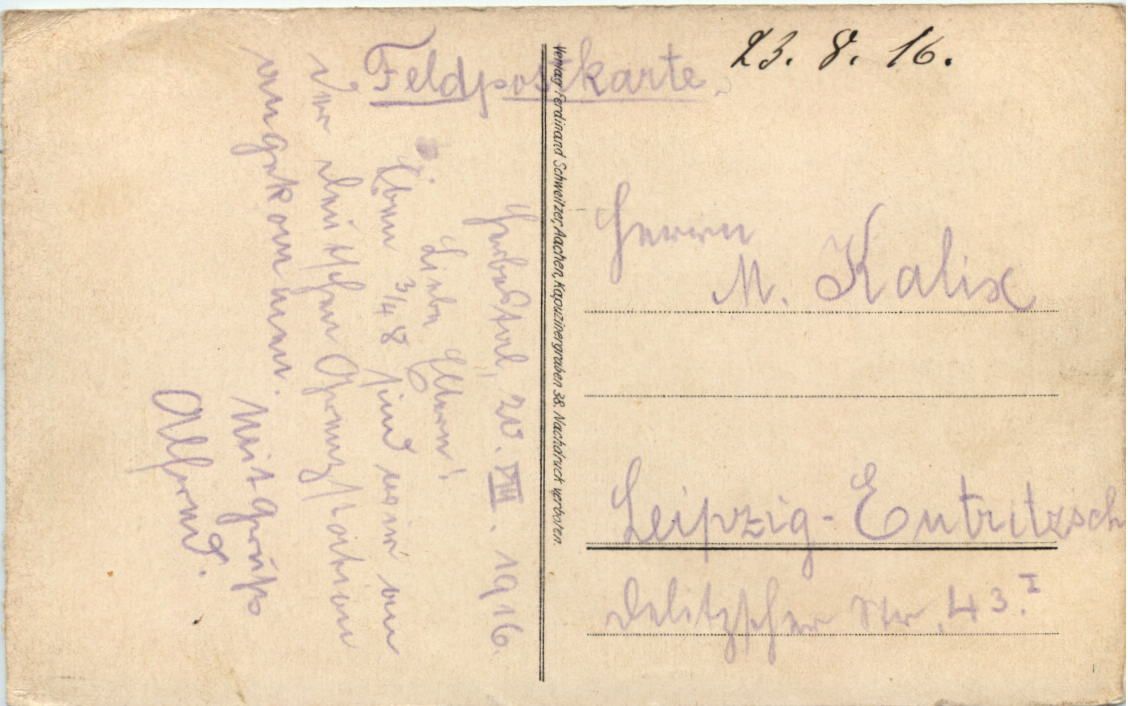 Feldpostkarte.
23. 8. 16.
Herbesthal, 20. VIII. 1916.
Liebe Eltern!
Eben 3/4 8 sind wir an
der deutschen Grenzstation
angekommen.
Mit Gruß
Alfred.
Verlag Ferdinand Schweitzer, Aachen, Kapuzinergraben 38. Nachdruck verboten.
Herrn
M. Kalix
Leipzig-Eutritzsch
Delitzscher Str. 43.I